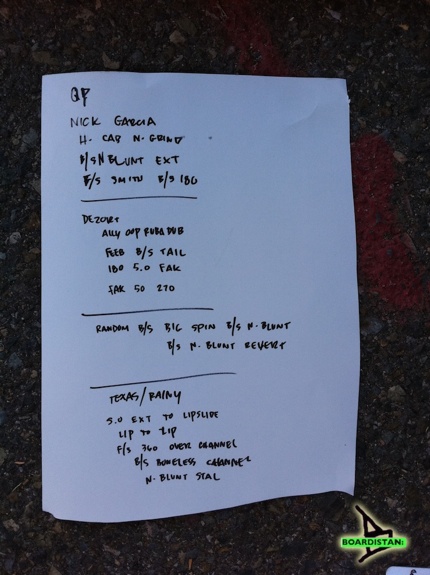 QP
NICK GARCIA
H. CAB N. GRIND
B/S N BLUNT EXT
F/S SMITH B/S 180
DEZORT
ALLY OOP RUBA DUB
FEEB B/S TAIL
180 5.0 FAK
FAK 50 270
RANDOM B/S BIG SPIN B/S N. BLUNT
B/S N. BLUNT REVERT
TEXAS/RAINY
5.0 EXT TO LIPSLIDE
LIP TO LIP
F/S 360 OVER CHANNEL
B/S BONELESS CHANNEL
N. BLUNT STAL
BOARDISTAN